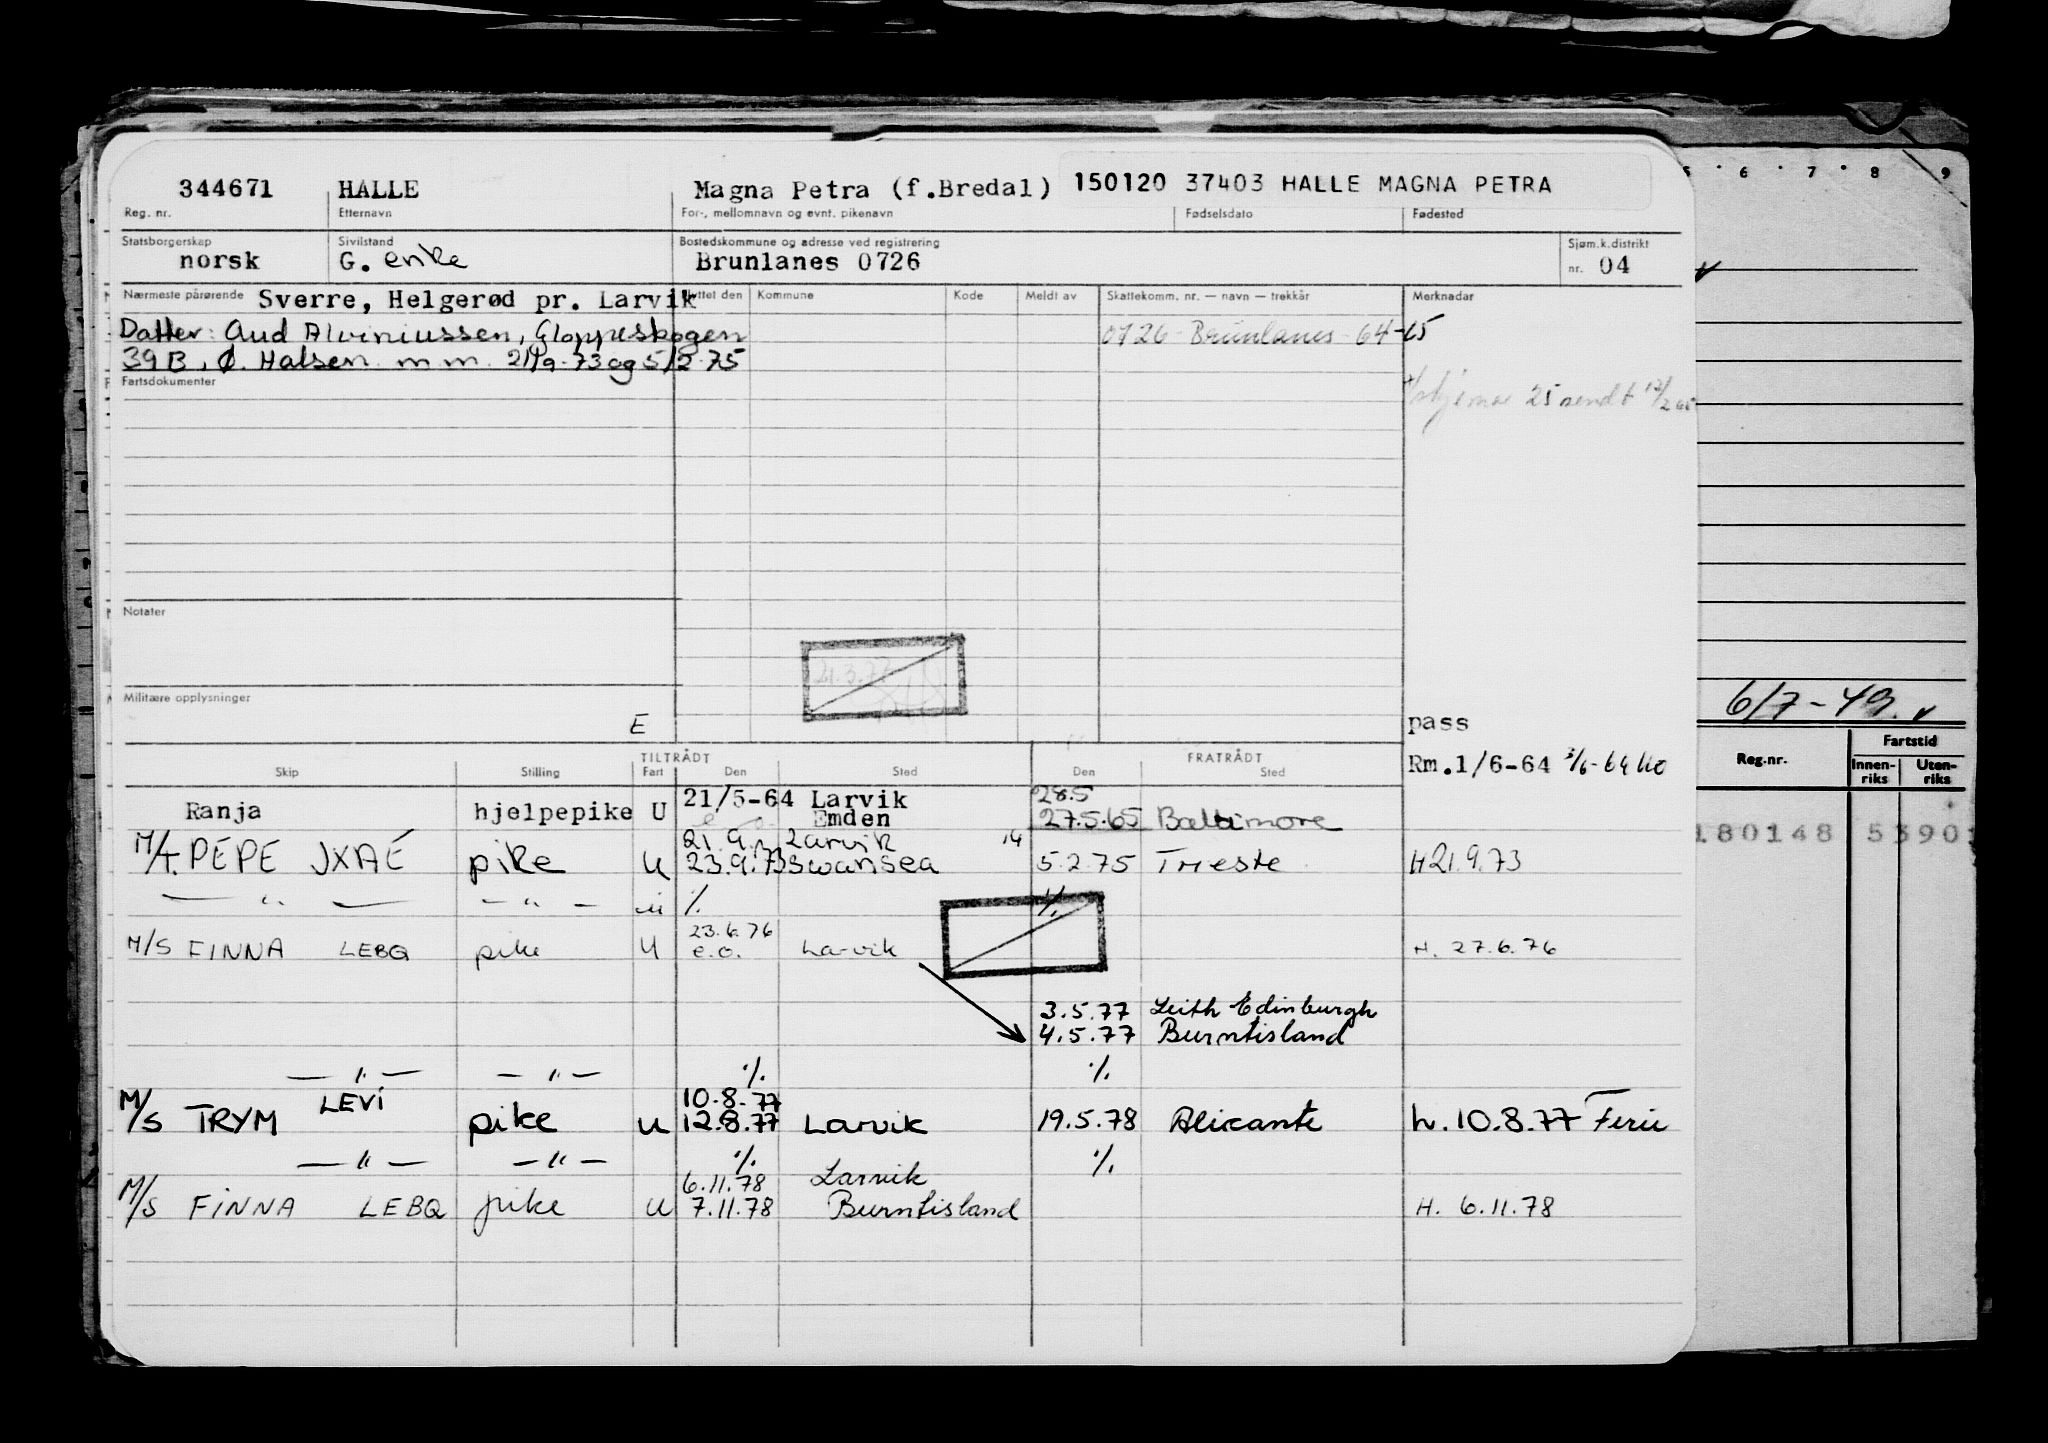 344671 HALLE Magna Petra (f.Bredal) 150120 37403 HALLE MAGNA PETRA
Reg. nr. Etternavn For-, mellomnavn og evnt. pikenavn Fødselsdato Fødested
Statsborgerskap Sivilstand Bostedskommune og adresse ved registrering Sjøm.k.distrikt
norsk G. enke Brunlanes 0726 nr. 04
Nærmeste pårørende Sverre, Helgerød pr. Larvik Flyttet den Kommune Kode Meldt av Skattekomm. nr. — navn — trekkår Merknadar
Datter: Aud Alviniussen, Gloppeskogen 0726 Brunlanes 64-65
39B, Ø. Halsen m m. 21/9-73 og 5/2-75
Fartsdokumenter
25 sendt
Notater
Militære opplysninger
E
pass
Rm.1/6-64
TILTRÅDT FRATRÅDT
Skip Stilling Fart Den Sted Den Sted
Ranja hjelpepike U 21/5-64 Larvik 28.5
Emden 27.5.65 Baltimore
21.9. Larvik 14
M/T. PEPE JXAE pike U 23.9.73 Swansea 5.2.75 Trieste H 21.9.73
— " — — " — u % %
23.6.76
M/S FINNA LEBQ pike U e.o. Larvik H. 27.6.76
3.5.77 Leith Edinburgh
4.5.77 Burntisland
— " — — " — % %
10.8.77
M/S TRYM LEVI pike U 12.8.77 Larvik 19.5.78 Alicante h. 10.8.77 Ferie
— " — — " — % %
6.11.78 Larvik
M/S FINNA LEBQ pike U 7.11.78 Burntisland H. 6.11.78
5 6 7 8 9
6/7-49.
Reg.nr. Fartstid
Innen-riks Uten-riks
180148 5390